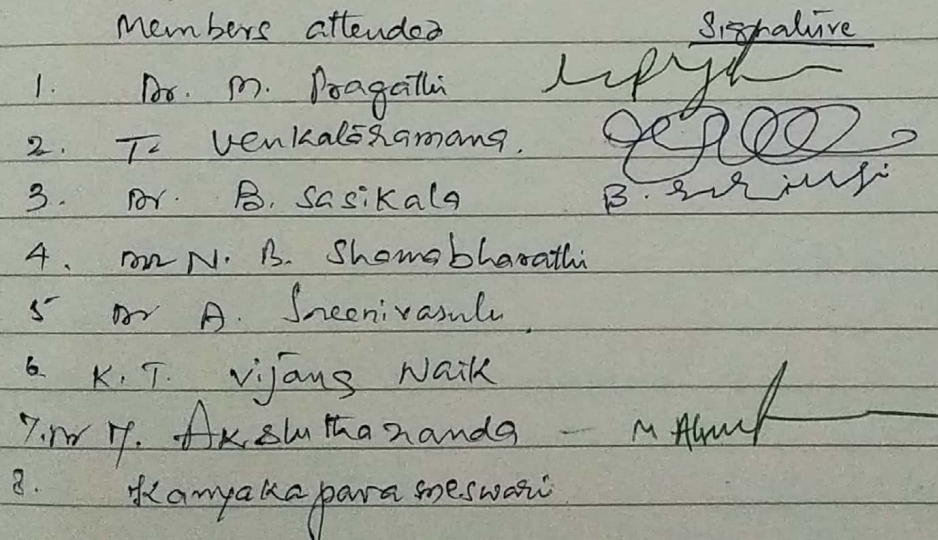 Members attended Signature
1. Dr. M. Pragathi
2. T. Venkataramana.
3. Dr. B. Sasikala
4. Dr N. B. Shamabharathi
5 Dr A. Sreenivasulu
6 K. T. Vijaya Naik
7. Dr M. Akshuthananda –
8. Kanyakaparameswari